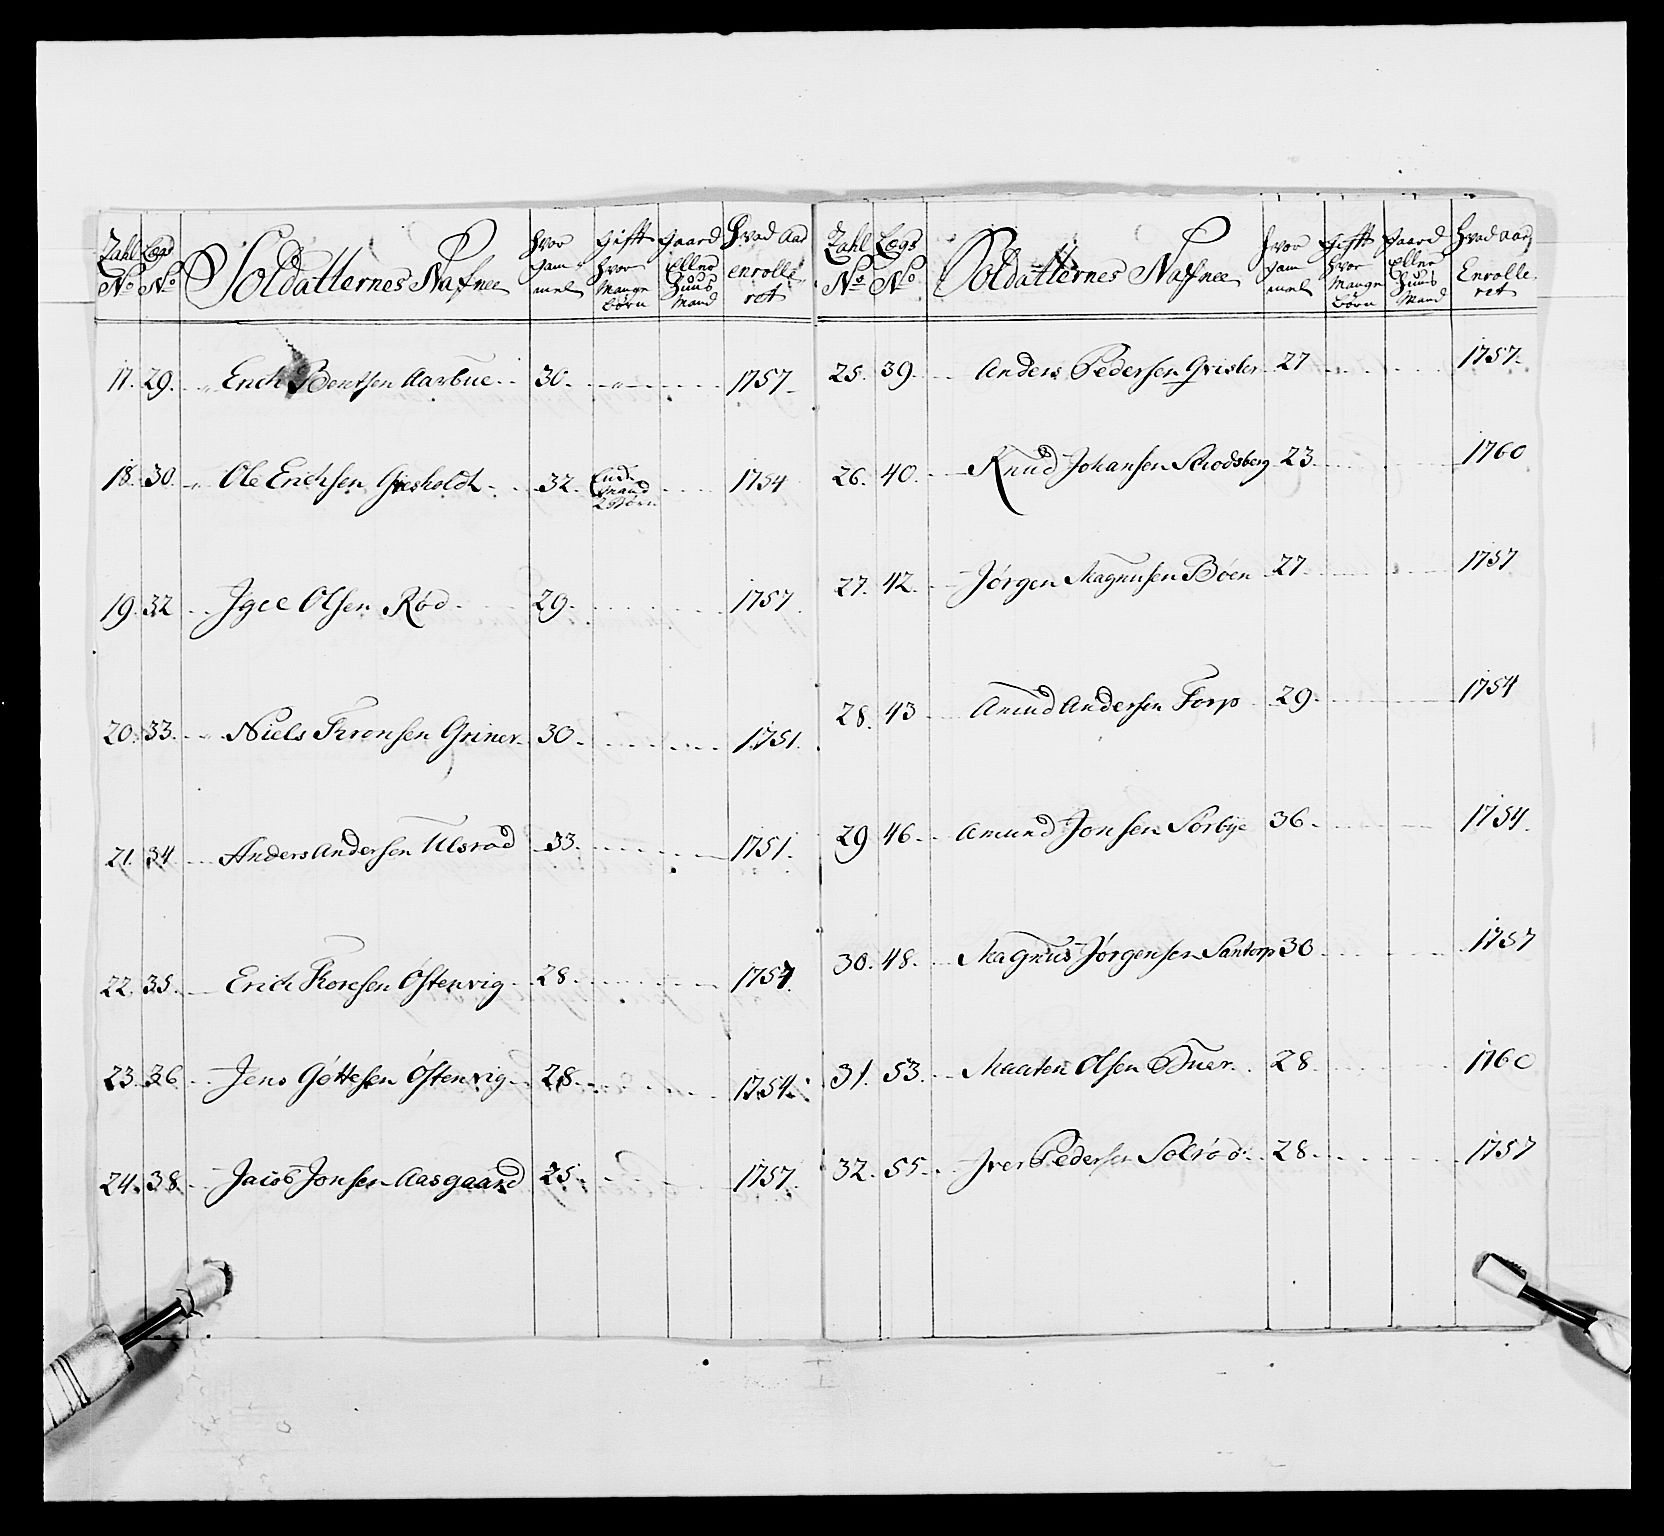 Zahl No Legs No Soldatternes Nafne hvor gam mel Gifft hvor Mange börn Gaard Eller Huus Mand Hvad Aar enrolle ret
17. 29. Erich Bentsen Aarbue 30. 1757
18. 30. Ole Erichsen Gresholdt 32. Enche Mand 2 Börn 1754
19. 32 Olsen Rød 29. 1757
20. 33. Niels Griner 30. 1751
21. 34 Anders Andersen Ulsrød 33. 1751
22. 35. Erich Toresen Østenvig 28. 1757
23. 36 Jens Göttesen Östenvig 28. 1754
24. 38. Jacob Jonsen Aasgaard 25. 1757
Zahl No Legs No Soldatternes Nafne hvor gam mel Gifft hvor Mange börn Gaard Eller Huus Mand Hvad Aar Enrolle ret
25. 39. Anders Pedersen 27 1757
26. 40. Knud Johansen 23. 1760
27. 42. Jörgen Magnusen Böen 27 1757
28. 43 Amund Andersen Torp 29. 1754
29 46. Amund Jonsen Sørbye 36. 1754
30. 48. Magnus Jörgensen Santorp 30 1757
31. 53. Olsen 28 1760
32. 55. Iver Pedersen Solrød 28 1757